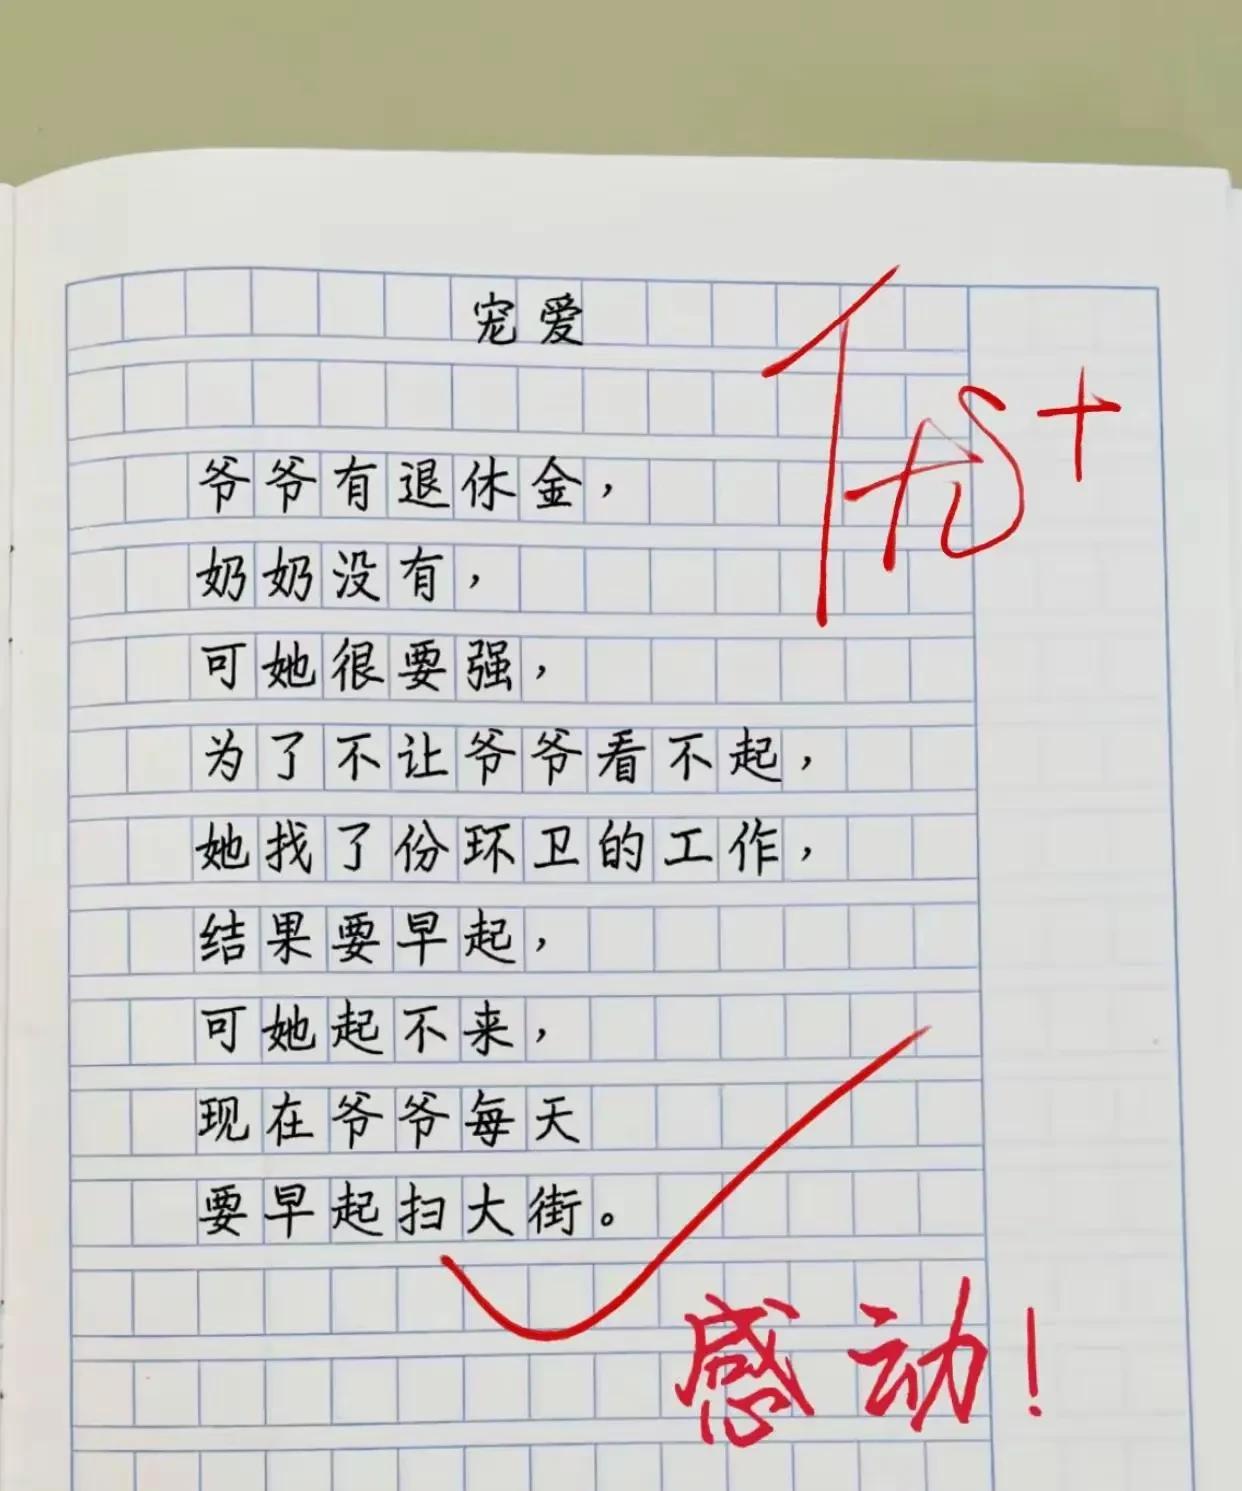 宠爱
爷爷有退休金，
奶奶没有，
可她很要强，
为了不让爷爷看不起，
她找了份环卫的工作，
结果要早起，
可她起不来，
现在爷爷每天
要早起扫大街。
感动！